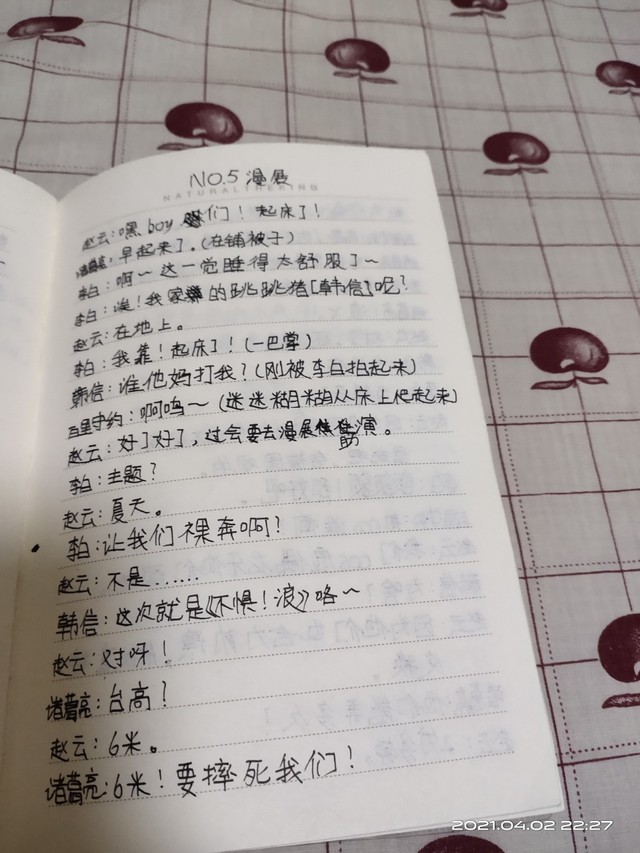 NO.5 漫展
NATURAL
赵云:嘿 boy 们! 起床了!
诸葛亮:早起来了。(在铺被子)
李白:啊~ 这一觉睡得太舒服了~
李白:诶!我家的跳跳猪[韩信]呢?
赵云:在地上。
李白:我靠!起床了!(一巴掌)
韩信:谁他妈打我?(刚被李白拍起来)
百里守约:啊呜~(迷迷糊糊从床上爬起来)
赵云:好了好了,过会要去漫展助演。
李白:主题?
赵云:夏天。
李白:让我们裸奔啊?
赵云:不是......
韩信:这次就是《不惧!浪》咯~
赵云:对呀!
诸葛亮:台高?
赵云:6米。
诸葛亮:6米!要摔死我们!
2021.04.02 22:27